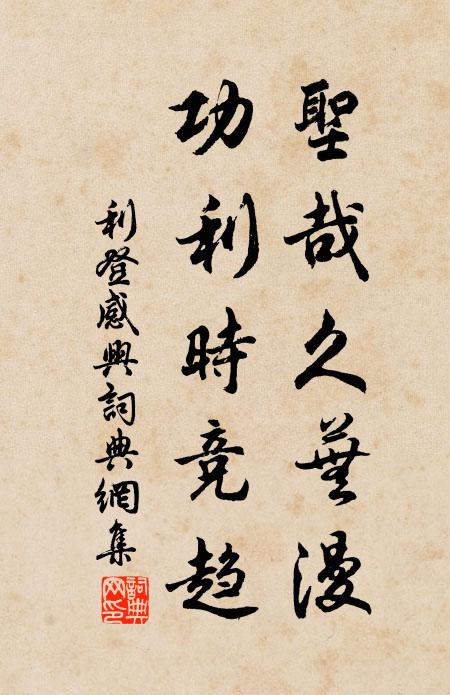 聖哉久蕪漫
功利時竞趋
利登感興詞典網集
詞典网印